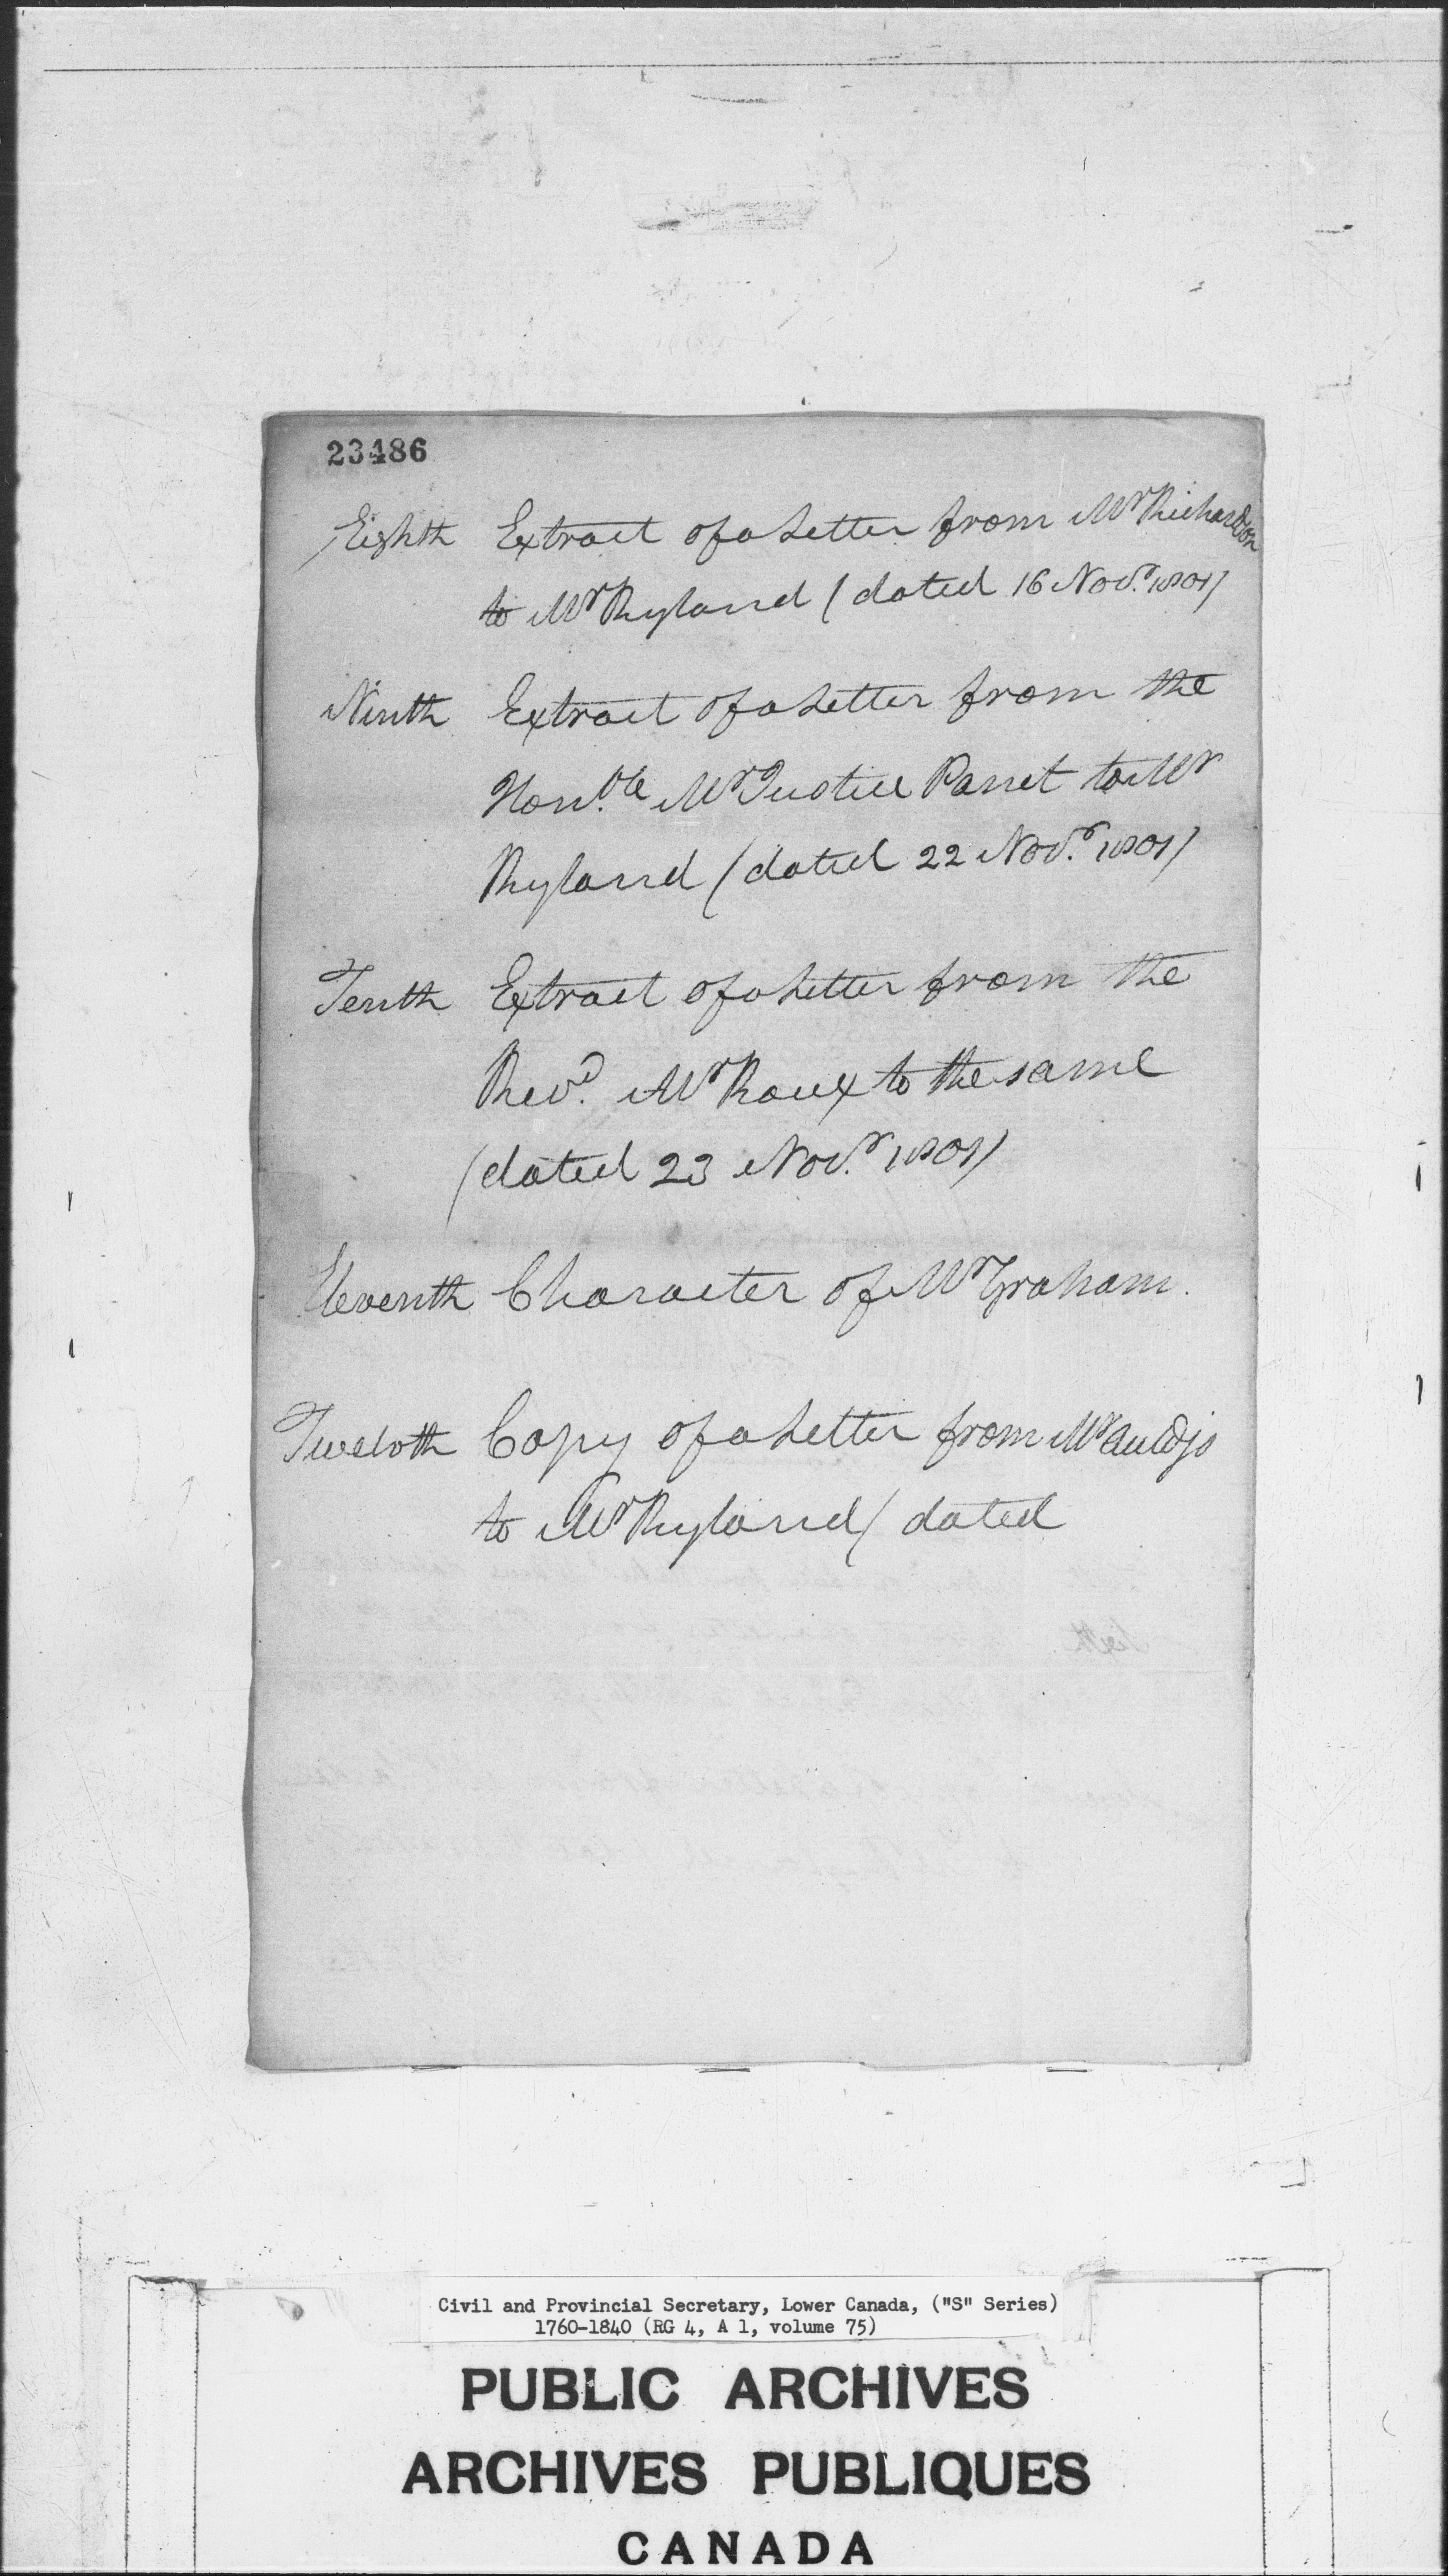 23486
Eighth Extract of a Letter from Mr Richardson
to Mr Ryland (dated 16 Novr. 1801)
Ninth Extract of a Letter from the
Honble. Mr Justice Panet to Mr
Ryland (dated 22 Novr. 1801)
Tenth Extract of a Letter from the
Revd. Mr Roux to the same
(dated 23 Novr. 1801)
Eleventh Character of Mr Graham.
Twelvth Copy of a Letter from Mr Auldjo
to Mr Ryland (dated
Civil and Provincial Secretary, Lower Canada, ("S" Series)
1760-1840 (RG 4, A 1, volume 75)
PUBLIC ARCHIVES
ARCHIVES PUBLIQUES
CANADA